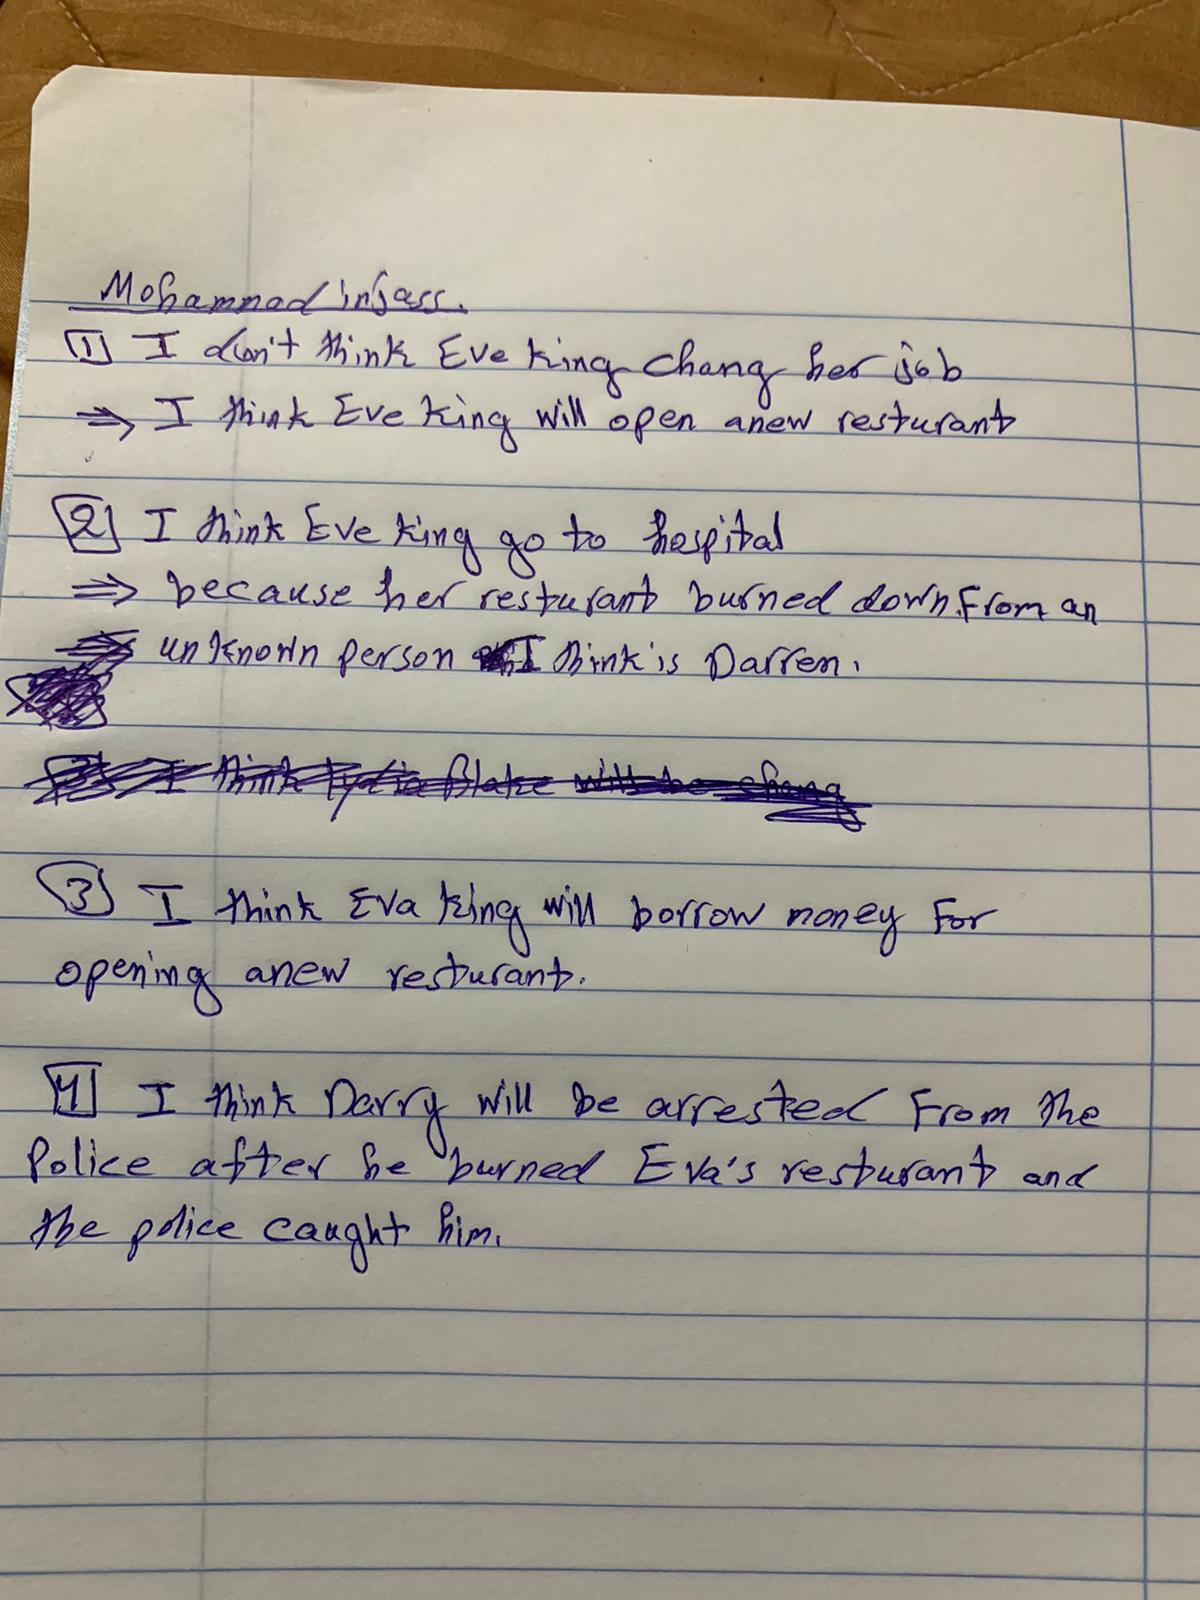 Mohammad injass.
1 I don't think Eve king chang her job
⇒ I think Eve king will open anew resturant
2 I think Eve king go to hospital
⇒ because her resturant burned down from an
unknown person I think is Darren.
I think lydia Blake will be chang
3 I think Eva king will borrow money For
opening anew resturant.
4 I think Darry will be arrested From the
Police after he burned Eva's resturant and
the police caught him.